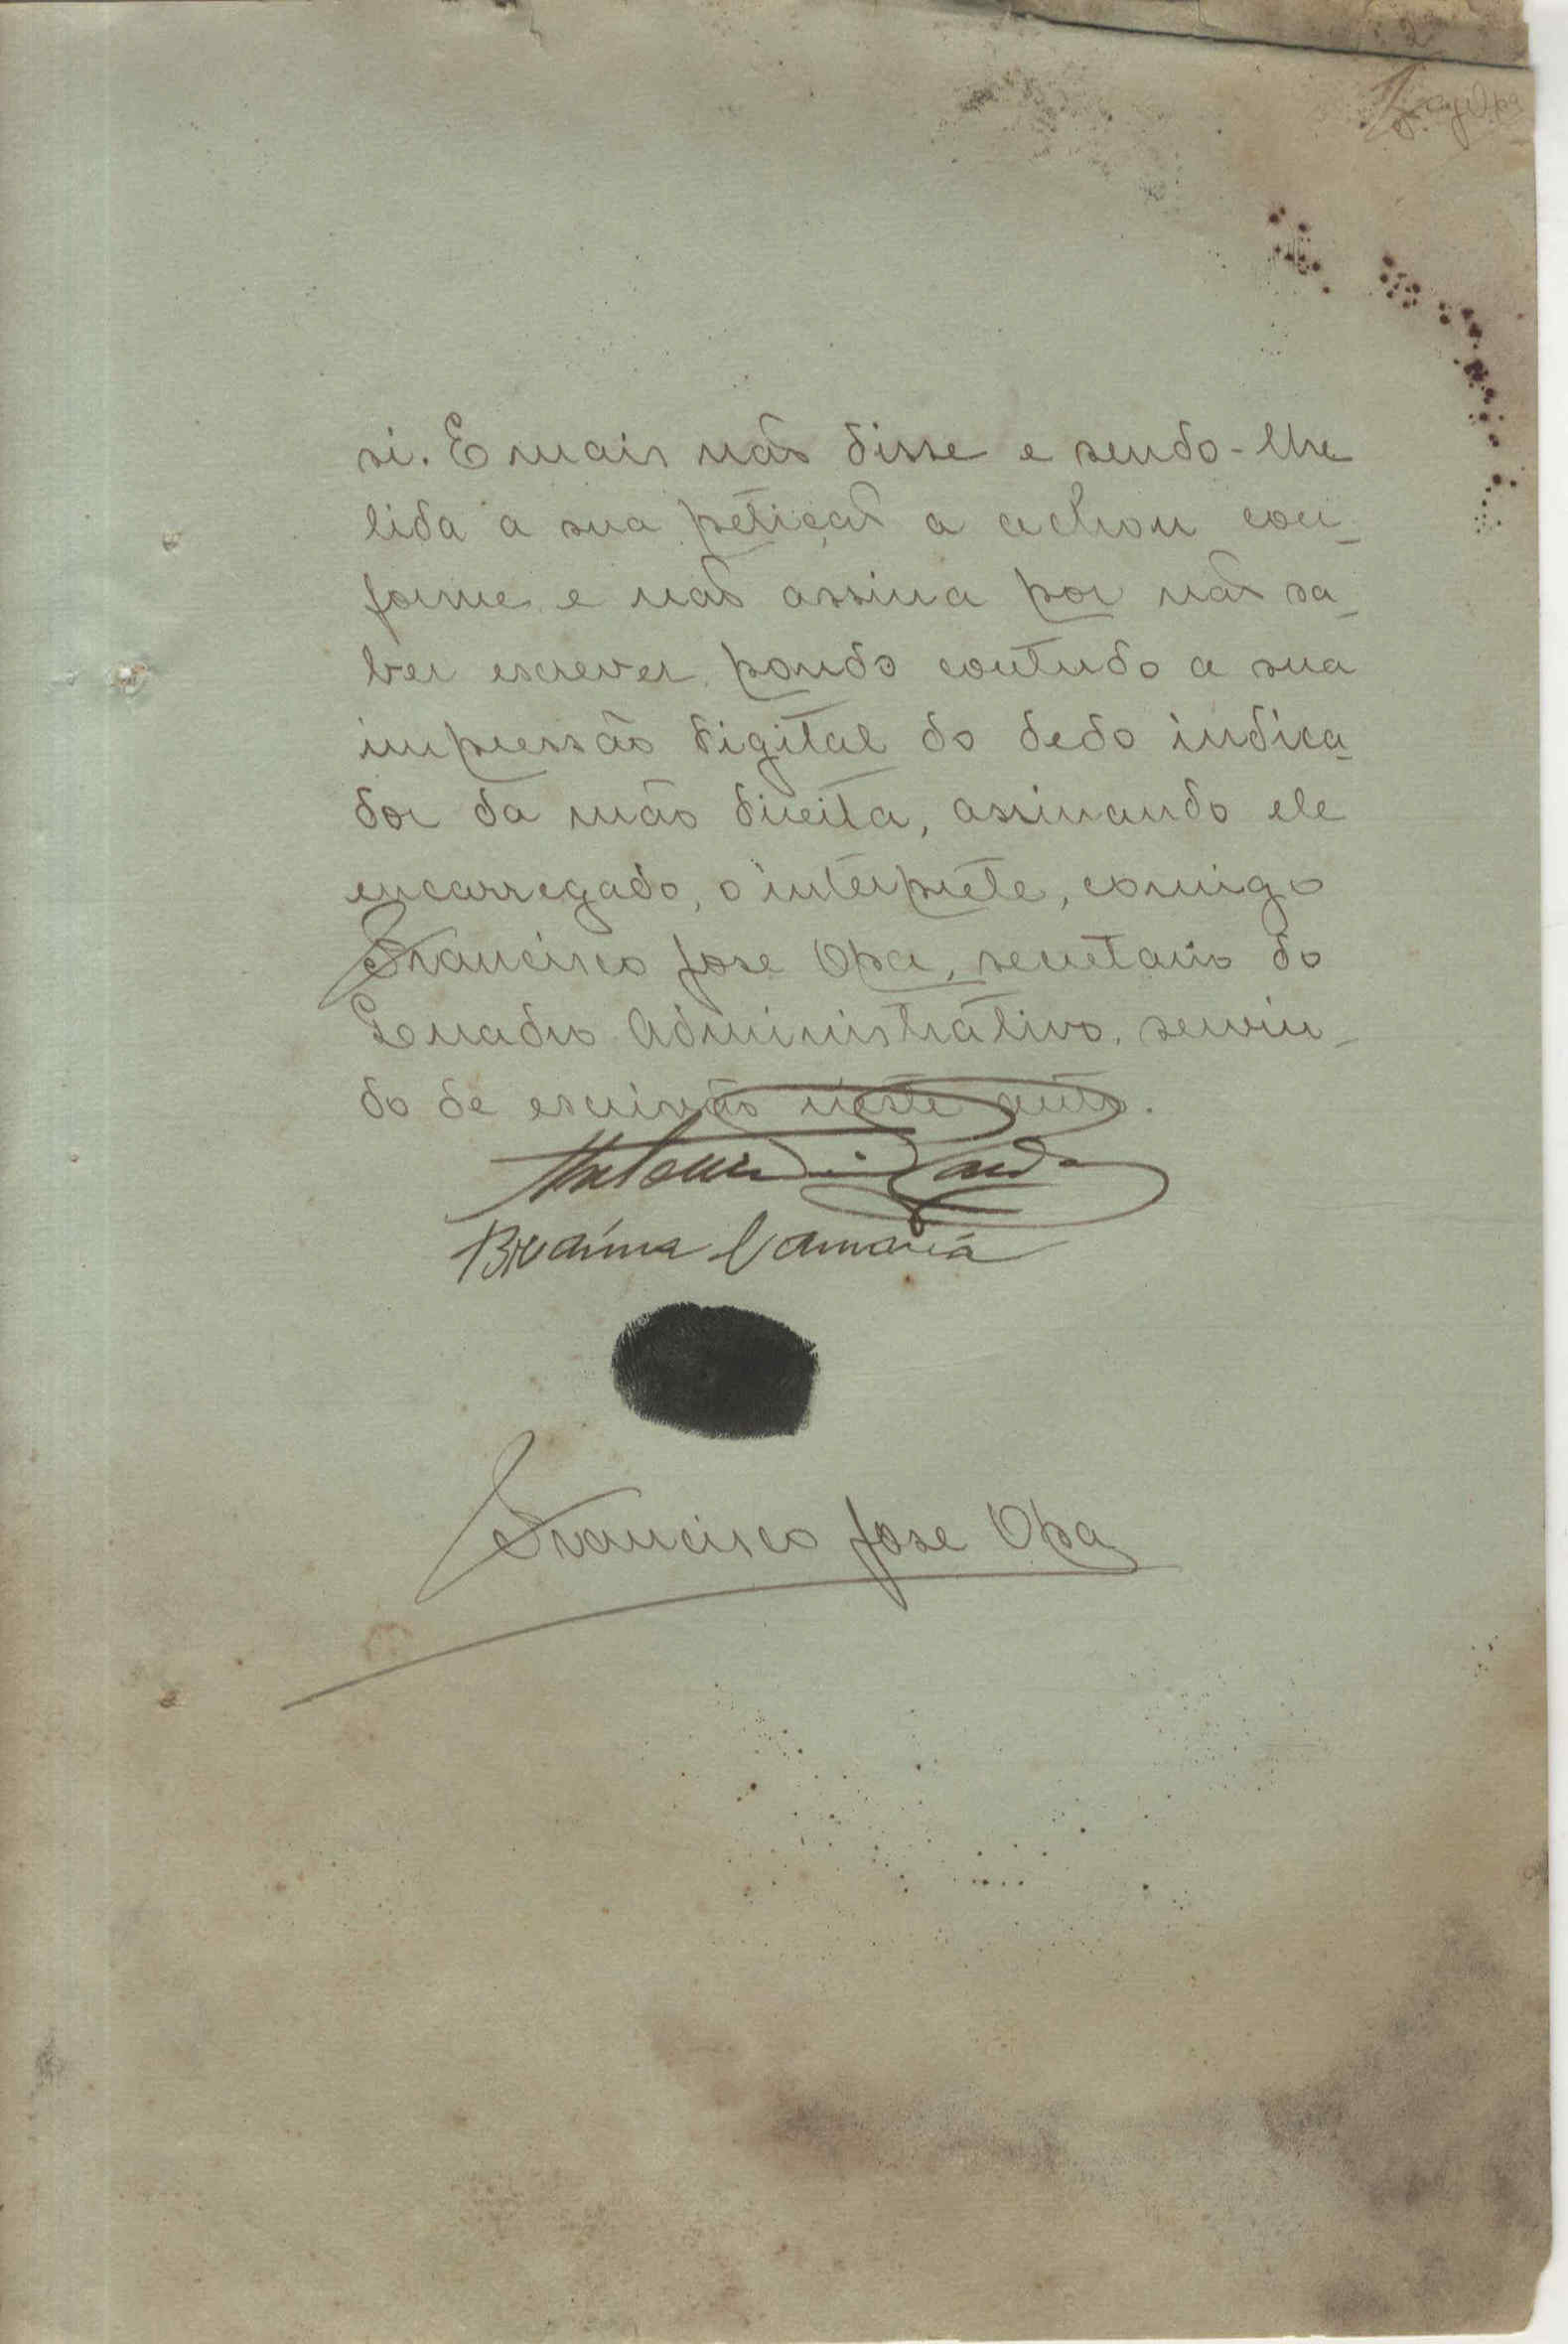 2
si. E mais não disse e sendo-lhe
lida a sua petição a achou con-
forme e não assina por não sa-
ber escrever, pondo contudo a sua
impressão digital do dedo indica-
dor da mão direita, assinando ele
encarregado, o interprete, comigo
Francisco Jose Opa, secretario do
Quadro Administrativo, servin-
do de escrivão neste auto.
Braima Camará
Francisco Jose Opa